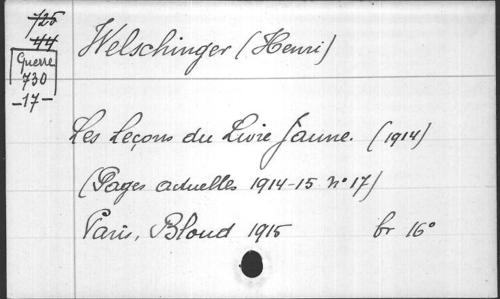 725
44
Guerre
730
-17-
Welschinger (Henri)
Les Leçons du Livre Jaune. (1914)
(Pages actuelles 1914-15 n° 17)
Paris, Bloud 1915 br 16°